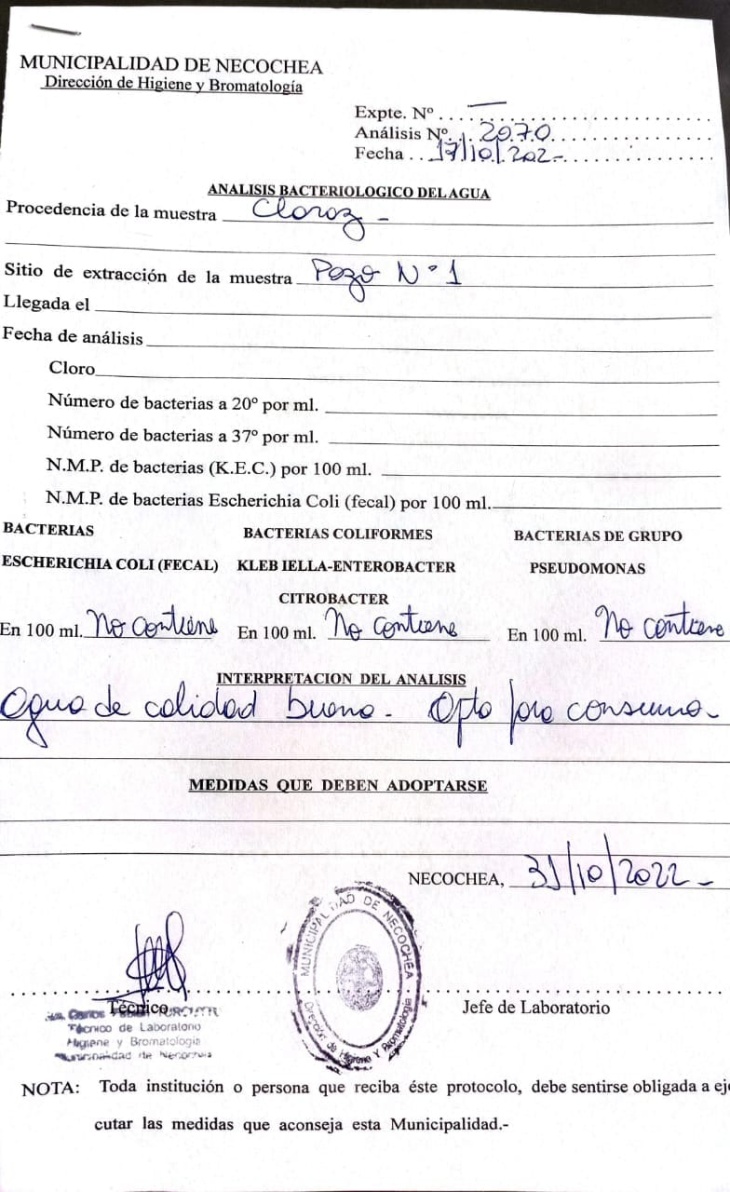 MUNICIPALIDAD DE NECOCHEA
Dirección de Higiene y Bromatología
Expte. Nº —
Análisis Nº 2970
Fecha 17/10/202-
ANALISIS BACTERIOLOGICO DEL AGUA
Procedencia de la muestra Cloroz -
Sitio de extracción de la muestra Pozo N° 1
Llegada el
Fecha de análisis
Cloro
Número de bacterias a 20º por ml.
Número de bacterias a 37º por ml.
N.M.P. de bacterias (K.E.C.) por 100 ml.
N.M.P. de bacterias Escherichia Coli (fecal) por 100 ml.
BACTERIAS BACTERIAS COLIFORMES BACTERIAS DE GRUPO
ESCHERICHIA COLI (FECAL) KLEB IELLA-ENTEROBACTER PSEUDOMONAS
CITROBACTER
En 100 ml. No contiene En 100 ml. No contiene En 100 ml. No contiene
INTERPRETACION DEL ANALISIS
Agua de calidad buena - Apta para consumo -
MEDIDAS QUE DEBEN ADOPTARSE
NECOCHEA, 31/10/2022 -
MUNICIPALIDAD DE NECOCHEA
Dirección de Higiene y Bromatología
Técnico Jefe de Laboratorio
Carlos
Técnico de Laboratorio
Higiene y Bromatología
Municipalidad de Necochea
NOTA: Toda institución o persona que reciba éste protocolo, debe sentirse obligada a eje
cutar las medidas que aconseja esta Municipalidad.-